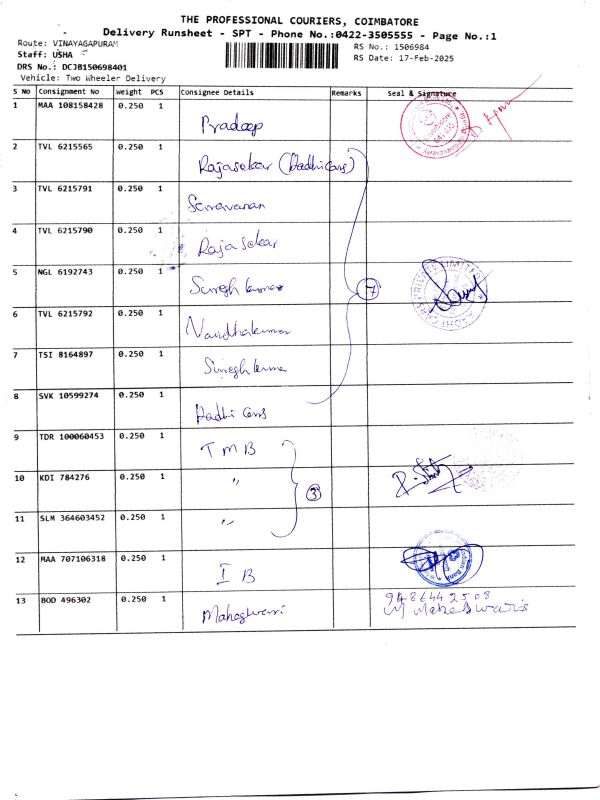 THE PROFESSIONAL COURIERS, COIMBATORE
Delivery Runsheet - SPT - Phone No.:0422-3505555 - Page No.:1
Route: VINAYAGAPURAM
RS No.: 1506984
Staff: USHA
RS Date: 17-Feb-2025
DRS No.: DCJB150698401
Vehicle: Two Wheeler Delivery
S No Consignment No Weight PCS Consignee Details Remarks Seal & Signature
1 MAA 108158428 0.250 1 Pradeep
2 TVL 6215565 0.250 1 Rajasekar (Aadhi Cars)
3 TVL 6215791 0.250 1 Saravanan
4 TVL 6215790 0.250 1 Raja Sekar
5 NGL 6192743 0.250 1 Suresh kumar 7
6 TVL 6215792 0.250 1 Nandhakumar
7 TSI 8164897 0.250 1 Suresh kumar
8 SVK 10599274 0.250 1 Aadhi Cars
9 TDR 100060453 0.250 1 TMB
10 KDI 784276 0.250 1 " 3
11 SLM 364603452 0.250 1 "
12 MAA 707106318 0.250 1 IB
13 BOD 496302 0.250 1 Maheswari 9486442508